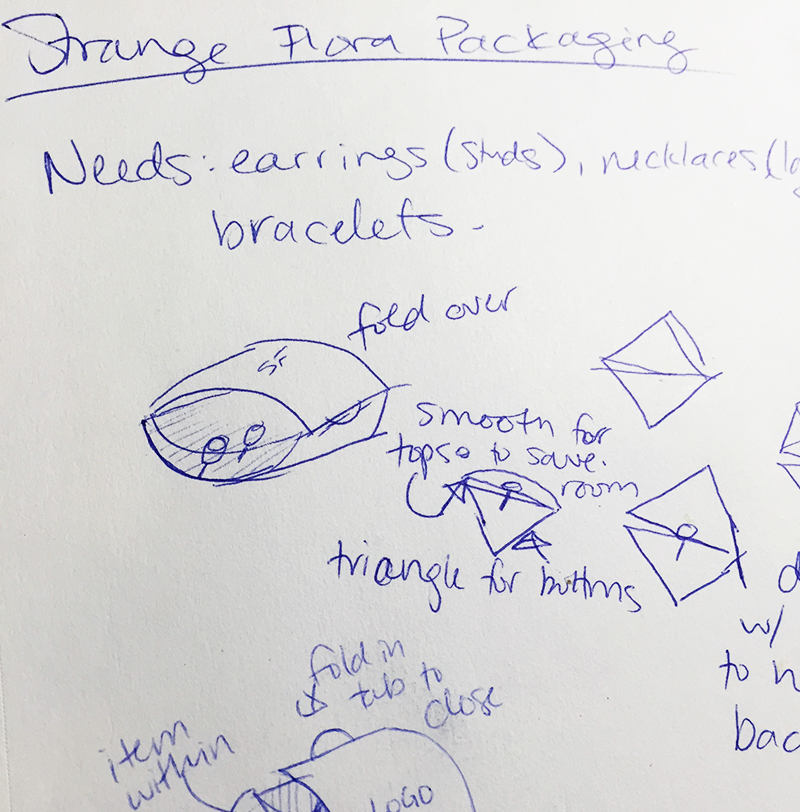 Strange Flora Packaging
Needs: earrings (studs), necklaces (lo
bracelets.
fold over
SF
smooth for
tops to save
room
triangle for bottoms
d
w/
to h
bac
fold in
tab to
close
item
within
LOGO